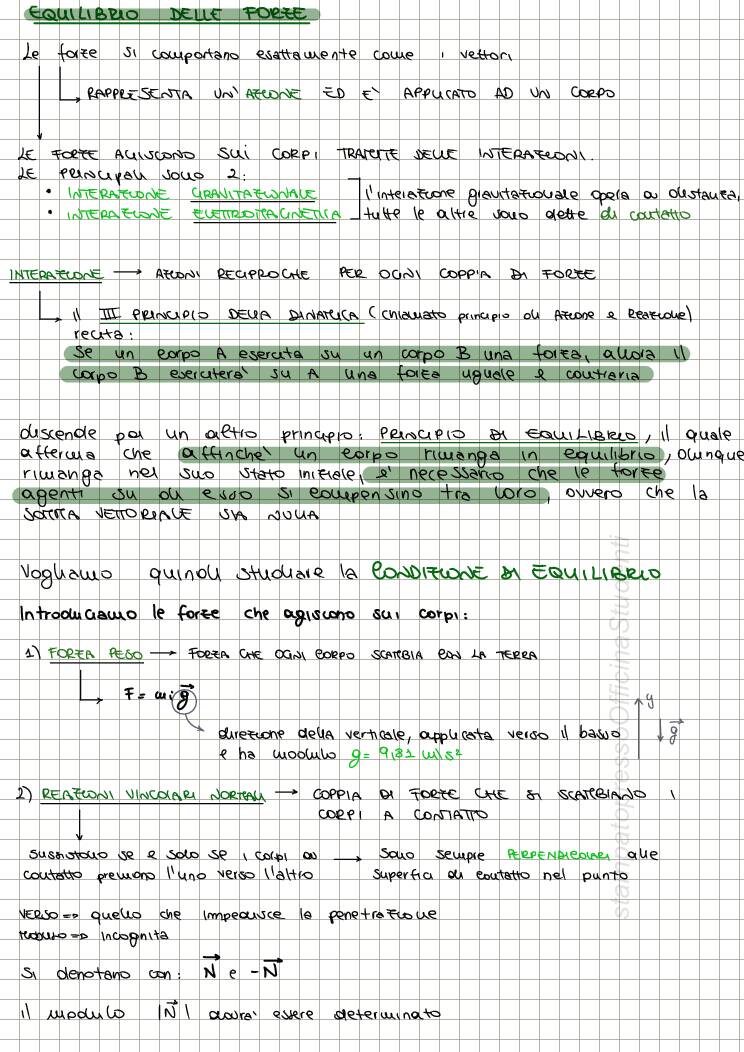 EQUILIBRIO DELLE FORZE
Le forze si comportano esattamente come i vettori
RAPPRESENTA UN'AZIONE ED E' APPLICATO AD UN CORPO
LE FORZE AGISCONO SUI CORPI TRAMITE DELLE INTERAZIONI.
LE PRINCIPALI SONO 2:
• INTERAZIONE GRAVITAZIONALE
• INTERAZIONE ELETTROMAGNETICA
l'interazione gravitazionale opera a distanza,
tutte le altre sono dette di contatto
INTERAZIONE → AZIONI RECIPROCHE PER OGNI COPPIA DI FORZE
il III PRINCIPIO DELLA DINAMICA (chiamato principio di Azione e Reazione)
recita:
Se un corpo A esercita su un corpo B una forza, allora il
corpo B eserciterà su A una forza uguale e contraria
discende poi un altro principio: PRINCIPIO DI EQUILIBRIO, il quale
afferma che affinchè un corpo rimanga in equilibrio, dunque
rimanga nel suo stato iniziale, e' necessario che le forze
agenti su di esso si compensino tra loro, ovvero che la
SOMMA VETTORIALE SIA NULLA
Vogliamo quindi studiare la CONDIZIONE DI EQUILIBRIO
Introduciamo le forze che agiscono sui corpi:
1) FORZA PESO → FORZA CHE OGNI CORPO SCAMBIA CON LA TERRA
F = mi g⃗
direzione della verticale, applicata verso il basso
e ha modulo g = 9,81 m/s²
y
g⃗
2) REAZIONI VINCOLARI NORMALI → COPPIA DI FORZE CHE SI SCAMBIANO I
CORPI A CONTATTO
Sussistono se e solo se i corpi a
contatto premono l'uno verso l'altro
→ Sono sempre PERPENDICOLARI alle
superfici di contatto nel punto
VERSO => quello che impedisce la penetrazione
MODULO => incognita
Si denotano con: N⃗ e -N⃗
il modulo |N⃗| dovrà essere determinato
stampatopressoOfficinaStudenti